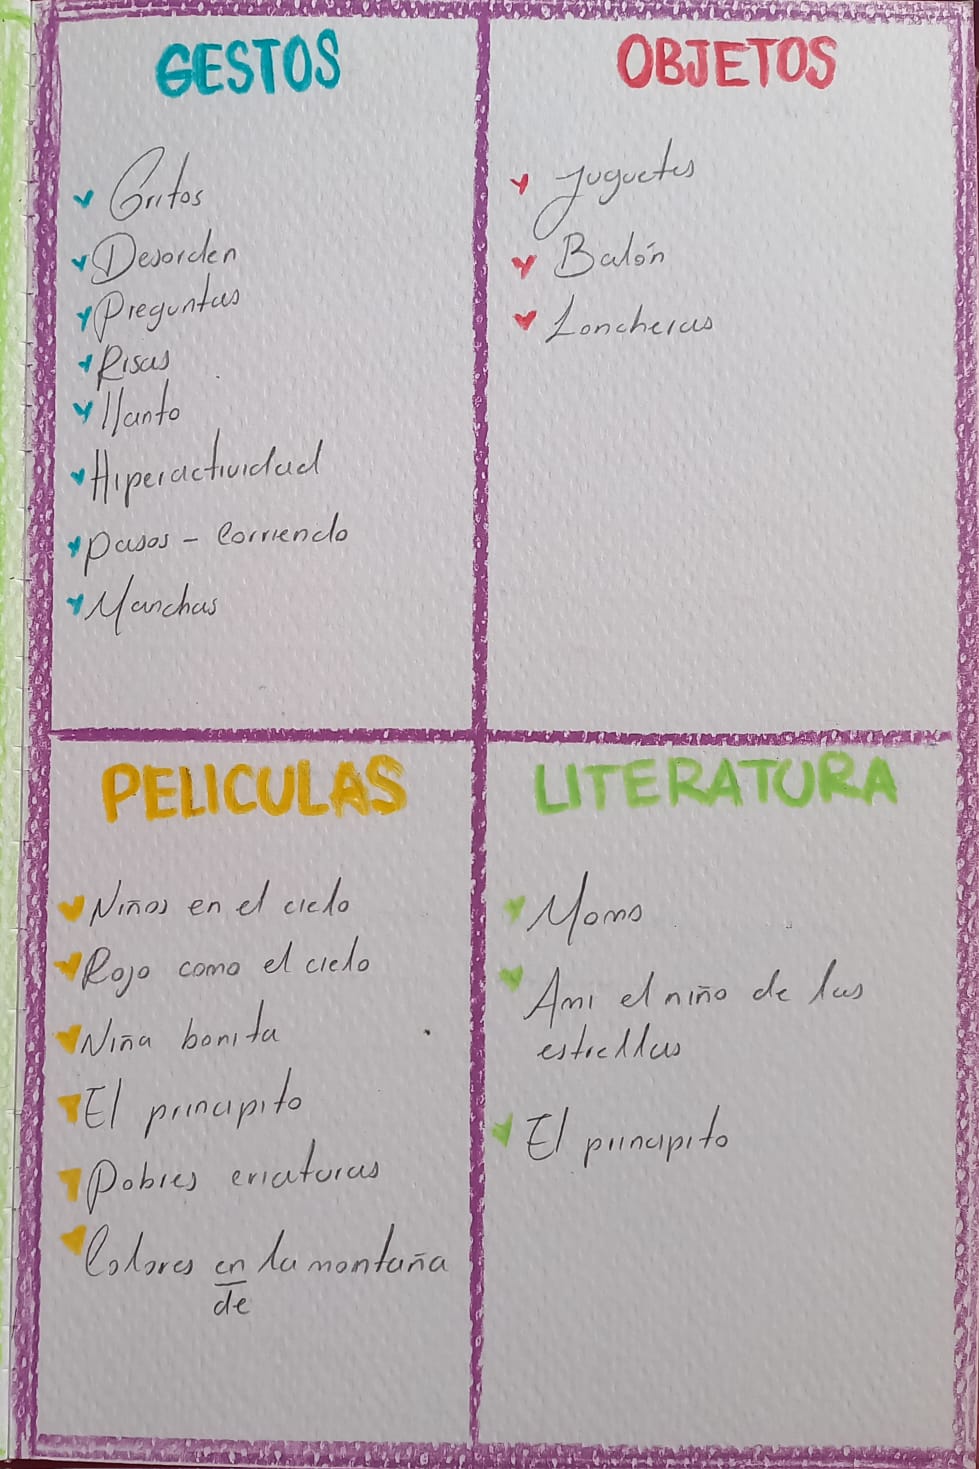 GESTOS
Gritos
Desorden
Preguntas
Risas
llanto
Hiperactividad
pasos - Corriendo
Manchas
OBJETOS
Juguetes
Balón
Loncheras
PELICULAS
Niños en el cielo
Rojo como el cielo
Niña bonita
El principito
Pobres criaturas
Colores en la montaña
de
LITERATURA
Momo
Ami el niño de las
estrellas
El principito